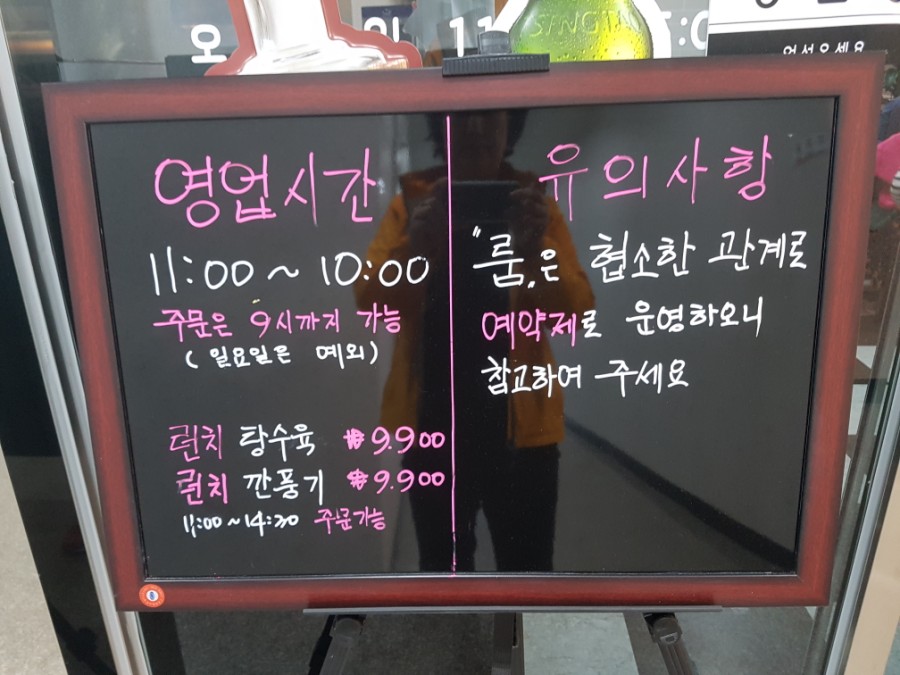 오
일 11
SINGT
어서오세요
영업시간
11:00 ~ 10:00
주문은 9시까지 가능
( 일요일은 예외 )
런치 탕수육 ₩9.900
런치 깐풍기 ₩9.900
11:00 ~ 14:30 주문가능
유의사항
"룸"은 협소한 관계로
예약제로 운영하오니
참고하여 주세요